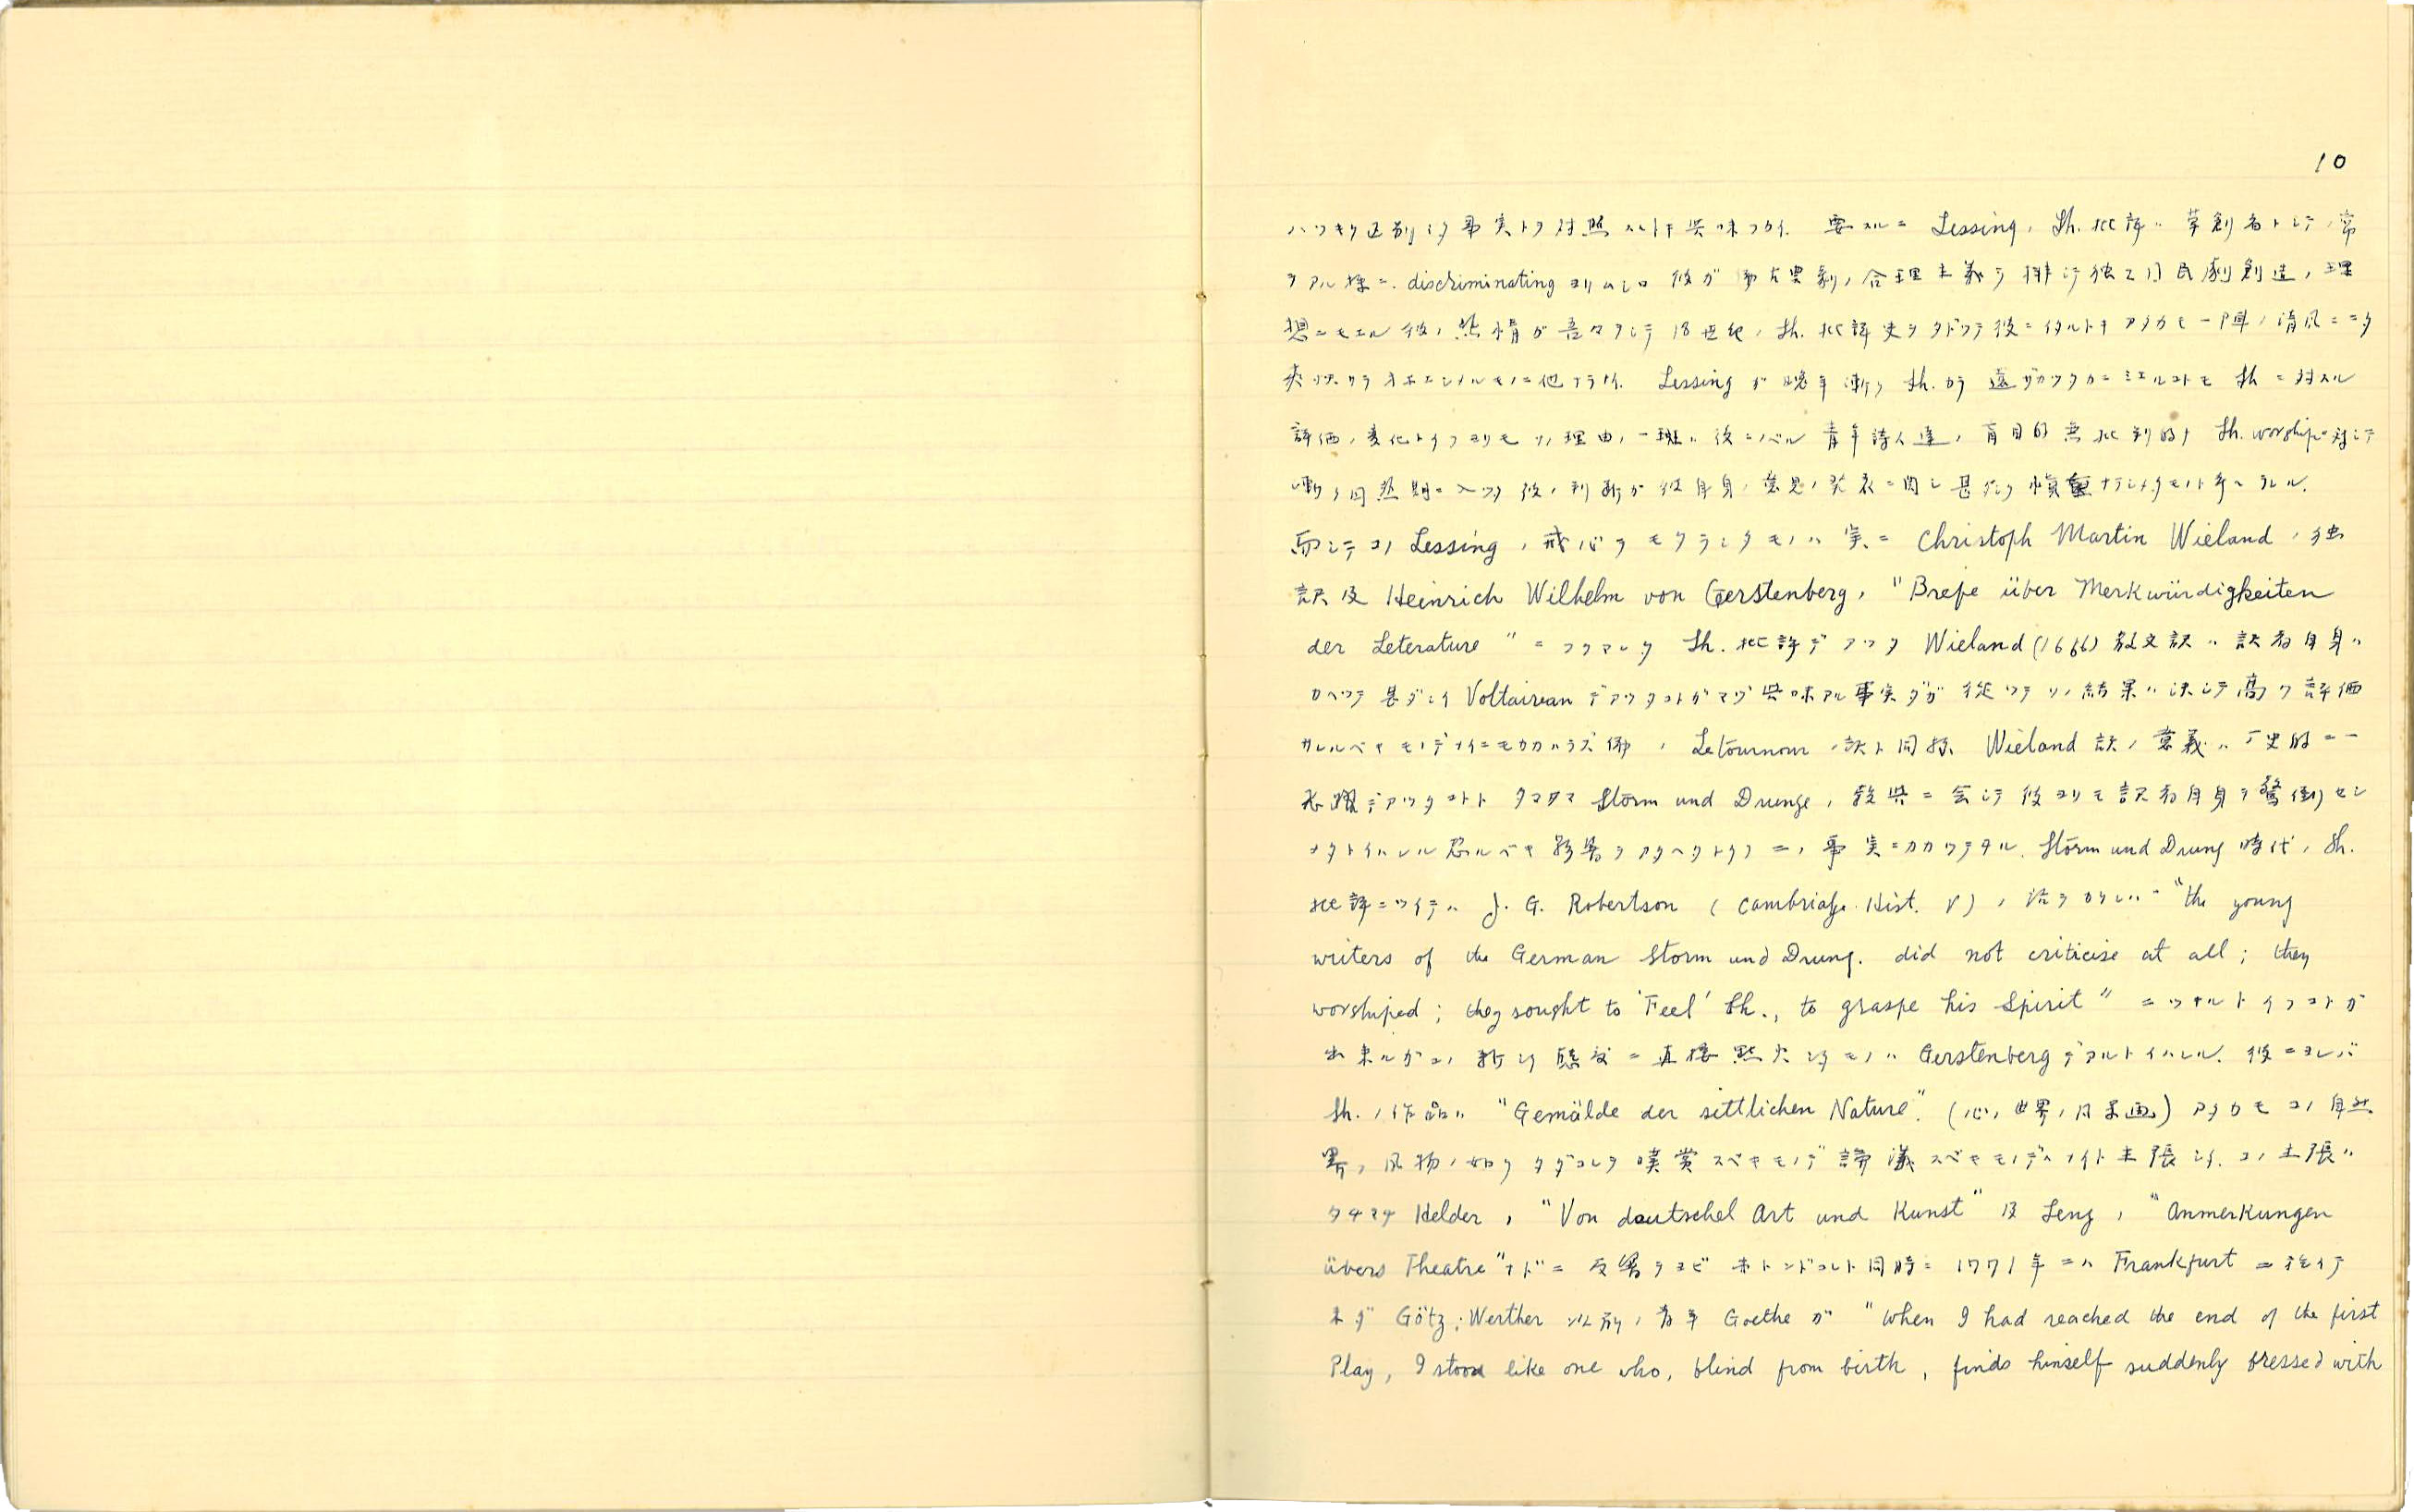 10
ハッキリ区別シタ事実トヲ対照スルトキ興味フカイ. 要スルニ Lessing ノ Sh. 批評ハ 草創者トシテノ常
ヲアル様ニ discriminating ヨリムシロ 彼ガ 擬古典劇ノ合理主義ヲ排シテ独乙国民劇創造ノ理
想ニモエル彼ノ熱情ガ吾々ヲシテ 18世紀ノ Sh. 批評史ヲタドッテ彼ニイタルトキアタカモ一陣ノ清風ニニタ
爽快ヲオボエシメルモノニ他ナラナイ. Lessing ガ晩年漸ク Sh. カラ遠ザカッタカニミエルコトモ Sh ニ対スル
評価ノ変化トイフヨリモソノ理由ノ一班ハ後ニノベル青年詩人達ノ盲目的無批判的ナ Sh. worship ニ対シテ
漸ク円熟期ニ入ッタ彼ノ判断ガ彼自身ノ意見ノ発表ニ関シ甚ダシク慎重ナラシメタモノト考ヘラレル.
而シテコノ Lessing ノ戒心ヲモタラシタモノハ実ニ Christoph Martin Wieland ノ独
訳及 Heinrich Wilhelm von Gerstenberg ノ "Brefe über Merkwürdigkeiten
der Leterature" ニフクマレタ Sh. 批評デアッタ Wieland (1666) 散文訳ハ訳者自身ハ
カヘッテ甚ダシイ Voltairean デアッタコトガマヅ興味アル事実ダガ従ッテソノ結果ハ決シテ高ク評価
サルベキモノデナイニモカカハラズ佛ノ Letournour ノ訳ト同様 Wieland 訳ノ意義ハ歴史的ニ一
飛躍デアッタコトトタマタマ Storm und Drunge ノ勃興ニ会シテ彼ヨリモ訳者自身ヲ驚倒セシ
メタトイハレル恐ルベキ影響ヲアタヘタトイフ二ノ事実ニカカッテヰル. Storm und Drung 時代ノ Sh.
批評ニツイテハ J. G. Robertson (Cambridge Hist. V) ノ語ヲカレバ "the young
writers of the German Storm und Drung. did not criticize at all; they
worshiped; they sought to 'Feel' Sh., to graspe his Spirit" ニツキルトイフコトガ
出来ルガコノ新シイ態度ニ直接點火シタモノハ Gerstenberg デアルトイハレル. 彼ニヨレバ
Sh. ノ作品ハ "Gemälde der sittlichen Nature". (心ノ世界ノ風景画) アタカモコノ自然
界ノ風物ノ如クタダコレヲ嘆賞スベキモノデ論議スベキモノデハナイト主張シタ. コノ主張ハ
タチマチ Helder ノ "Von deutschel Art und Kunst" 及 Lenz ノ "Anmerkungen
übers Theatre" ナドニ反響ヲヨビホトンドコレト同時ニ 1771年ニハ Frankfurt ニ於イテ
未ダ Götz; Werther 以前ノ青年 Goethe ガ "when I had reached the end of the first
Play, I stood like one who, blind from birth, finds himself suddenly bressed with